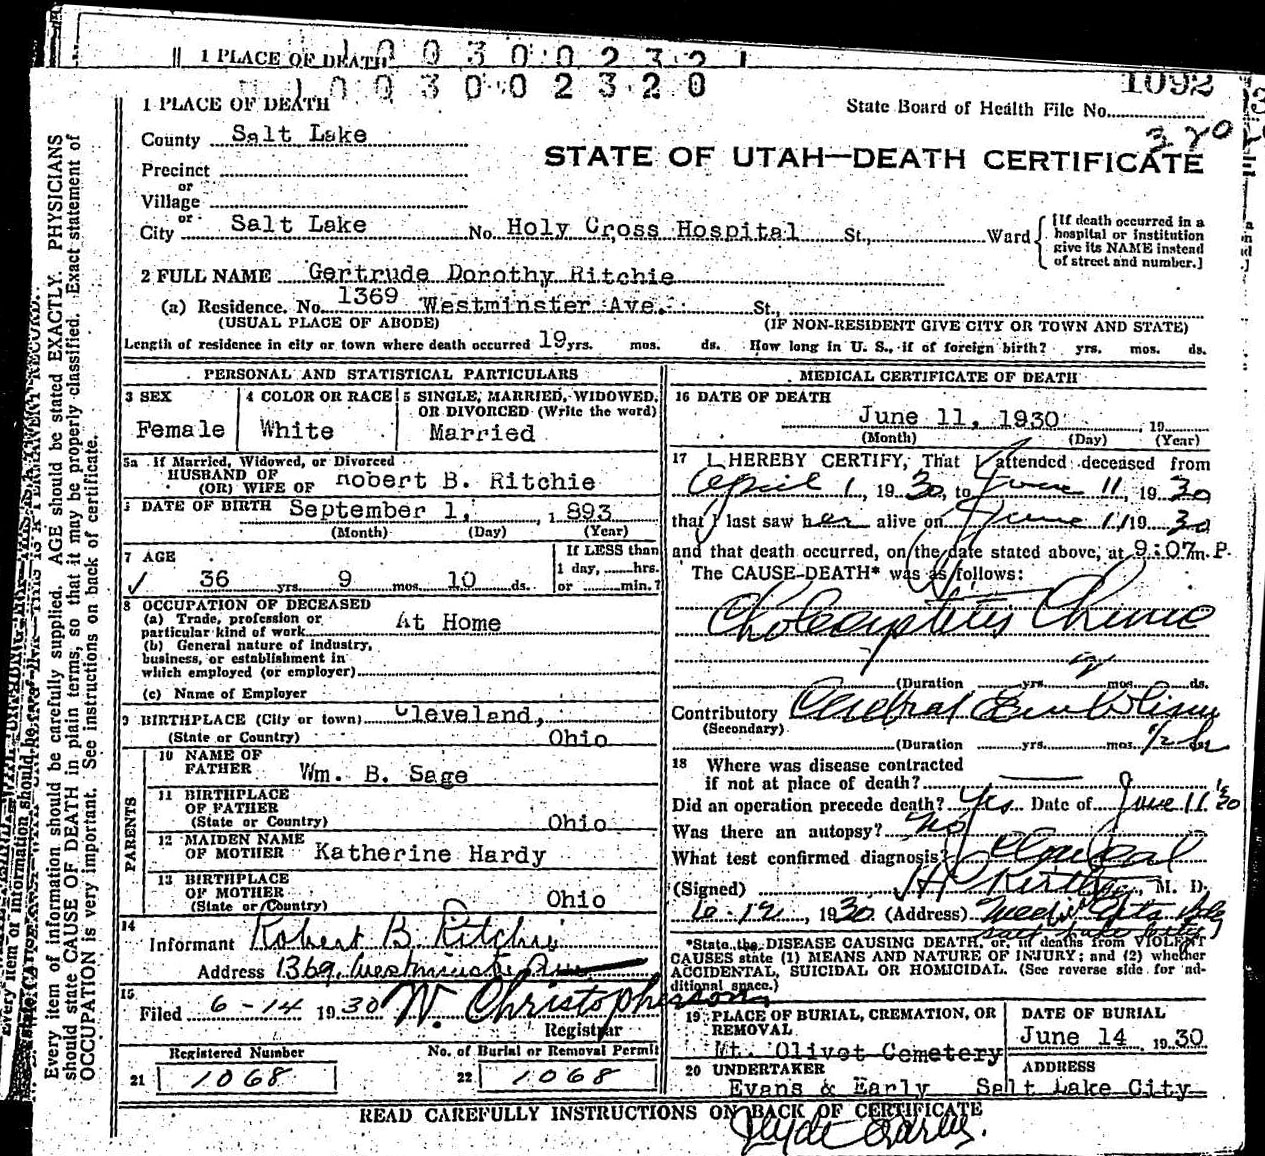 1 PLACE OF DEATH 1 0 0 3 0 0 2 3 2 1
1 0 0 3 0 0 2 3 2 0
1092
1 PLACE OF DEATH
State Board of Health File No.
320
County Salt Lake
STATE OF UTAH—DEATH CERTIFICATE
Precinct
or
Village
or
City Salt Lake No. Holy Cross Hospital St., Ward
[If death occurred in a
hospital or institution
give its NAME instead
of street and number.]
2 FULL NAME Gertrude Dorothy Ritchie
(a) Residence. No. 1369 Westminster Ave. St.,
(USUAL PLACE OF ABODE) (IF NON-RESIDENT GIVE CITY OR TOWN AND STATE)
Length of residence in city or town where death occurred 19 yrs. mos. ds. How long in U. S., if of foreign birth? yrs. mos. ds.
PERSONAL AND STATISTICAL PARTICULARS
3 SEX
Female
4 COLOR OR RACE
White
5 SINGLE, MARRIED, WIDOWED,
OR DIVORCED (Write the word)
Married
5a If Married, Widowed, or Divorced
HUSBAND OF
(OR) WIFE OF Robert B. Ritchie
DATE OF BIRTH September 1, 1893
(Month) (Day) (Year)
7 AGE
36 yrs. 9 mos. 10 ds.
If LESS than
1 day, hrs.
or min.?
8 OCCUPATION OF DECEASED
(a) Trade, profession or
particular kind of work At Home
(b) General nature of industry,
business, or establishment in
which employed (or employer)
(c) Name of Employer
9 BIRTHPLACE (City or town) Cleveland,
(State or Country) Ohio
PARENTS
10 NAME OF
FATHER Wm. B. Sage
11 BIRTHPLACE
OF FATHER
(State or Country) Ohio
12 MAIDEN NAME
OF MOTHER Katherine Hardy
13 BIRTHPLACE
OF MOTHER
(State or Country) Ohio
14
Informant Robert B Ritchie
Address 1369 Westminster Ave
15
Filed 6-14 1930 W. Christopherson
Registrar
Registered Number
21 1068
No. of Burial or Removal Permit
22 1068
MEDICAL CERTIFICATE OF DEATH
16 DATE OF DEATH
June 11, 1930 , 19
(Month) (Day) (Year)
17 I HEREBY CERTIFY, That I attended deceased from
April 1, 1930, to June 11, 1930
that I last saw her alive on June 11, 1930
and that death occurred, on the date stated above, at 9:07 m. P.
The CAUSE DEATH* was as follows:
Cholecystitis Chronic
(Duration yrs. mos. ds.
Contributory Cerebral Embolism
(Secondary)
(Duration yrs. mos. 1/2 ds.
18 Where was disease contracted
if not at place of death?
Did an operation precede death? Yes Date of June 11 30
Was there an autopsy? No
What test confirmed diagnosis? Clinical
(Signed) , M. D.
6-12, 1930 (Address) Medical Arts Bldg
Salt Lake City
*State the DISEASE CAUSING DEATH, or, in deaths from VIOLENT
CAUSES state (1) MEANS AND NATURE OF INJURY; and (2) whether
ACCIDENTAL, SUICIDAL OR HOMICIDAL. (See reverse side for ad-
ditional space.)
19 PLACE OF BURIAL, CREMATION, OR
REMOVAL
Mt. Olivet Cemetery
DATE OF BURIAL
June 14, 1930
20 UNDERTAKER
Evans & Early
ADDRESS
Salt Lake City
READ CAREFULLY INSTRUCTIONS ON BACK OF CERTIFICATE
Every item of information should be carefully supplied. AGE should be stated EXACTLY. PHYSICIANS
should state CAUSE OF DEATH in plain terms, so that it may be properly classified. Exact statement of
OCCUPATION is very important. See instructions on back of certificate.